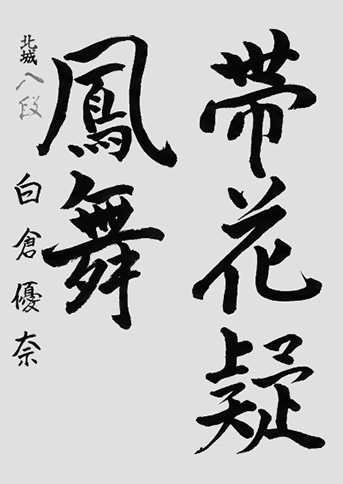 帯花疑
鳳舞
北城 八段 白倉優奈